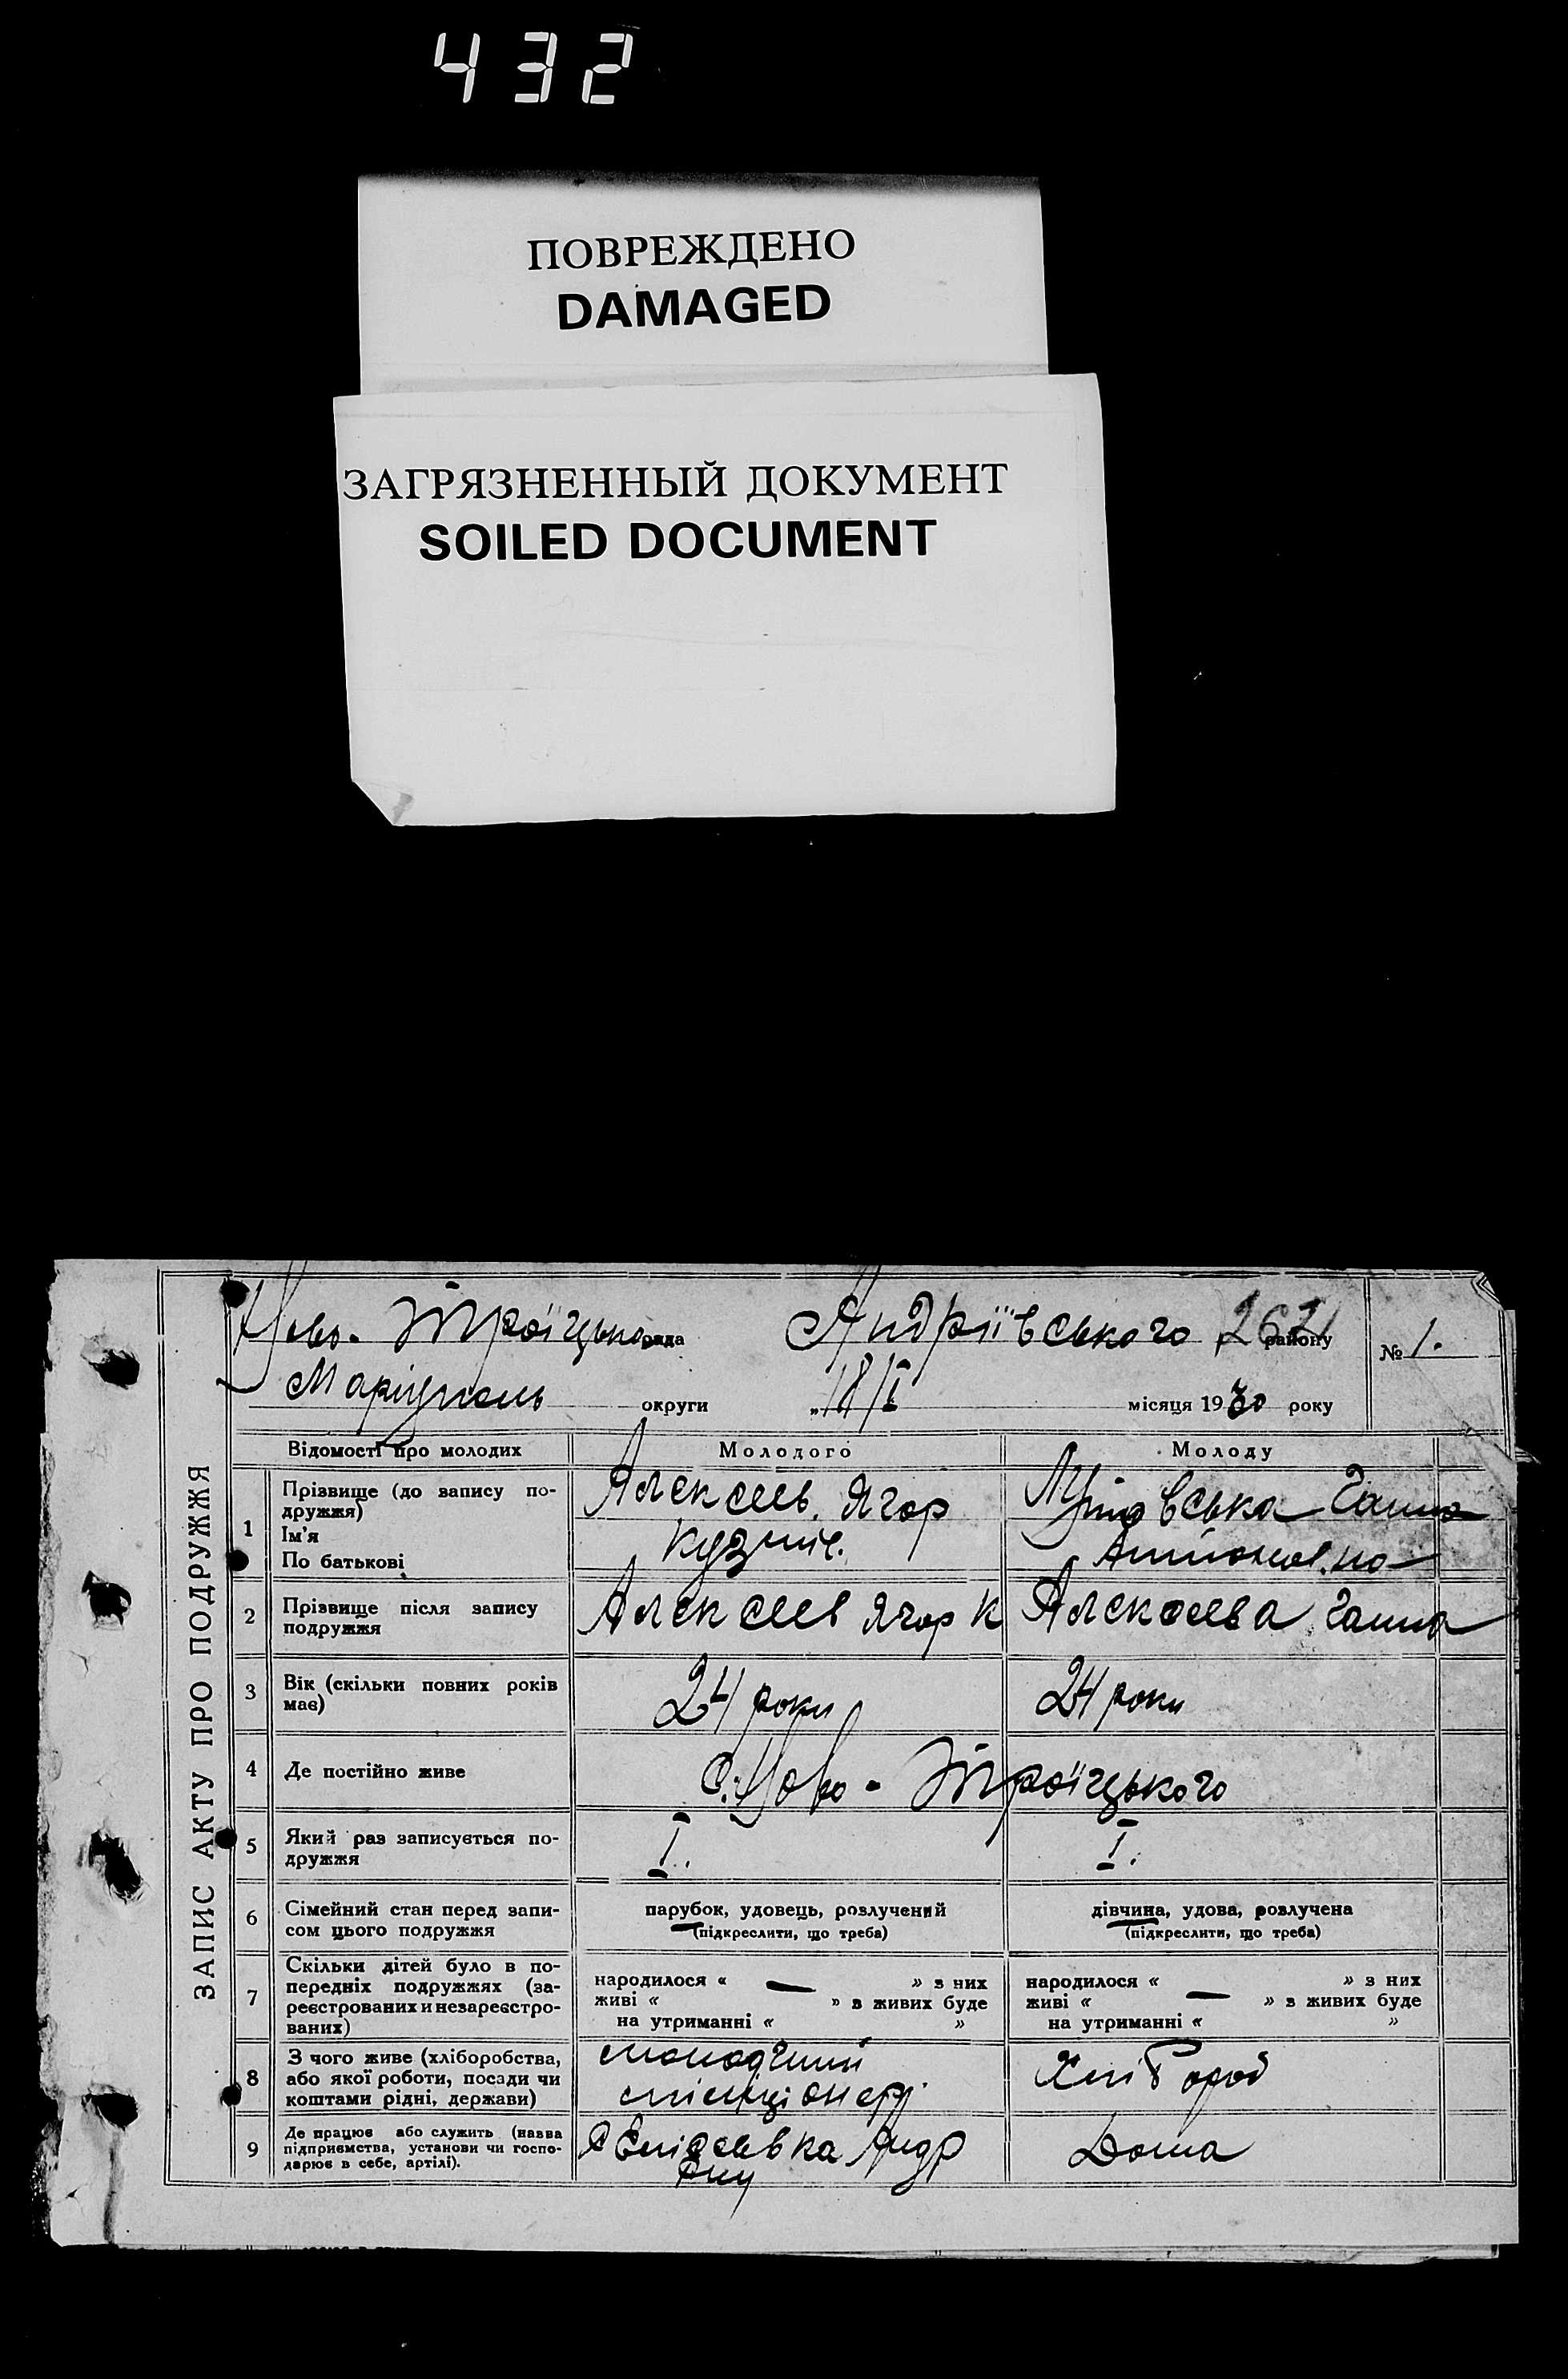 432
ПОВРЕЖДЕНО
DAMAGED
ЗАГРЯЗНЕННЫЙ ДОКУМЕНТ
SOILED DOCUMENT
ЗАПИС АКТУ ПРО ПОДРУЖЖЯ
Ново-Троїцька рада Андріївського району № 1.
Маріуполь округи „18/I місяця 1930 року
Відомості про молодих Молодого Молоду
1 Прізвище (до запису по-
дружжя)
Ім'я
По батькові
Алексеев Ягор
Кузмич.
Ганна
Антоновна
2 Прізвище після запису
подружжя
Алексеев Ягор К
Алексеева Ганна
3 Вік (скільки повних років
має)
24 роки 24 роки
4 Де постійно живе
С. Ново-Троїцького
5 Який раз записується по-
дружжя
I. I.
6 Сімейний стан перед запи-
сом цього подружжя
парубок, удовець, розлучений
(підкреслити, що треба)
дівчина, удова, розлучена
(підкреслити, що треба)
7 Скільки дітей було в по-
передніх подружжях (за-
реєстрованих и незареєстро-
ваних)
народилося « — » з них
живі « » з живих буде
на утриманні « »
народилося « — » з них
живі « — » з живих буде
на утриманні « »
8 З чого живе (хліборобства,
або якої роботи, посади чи
коштами рідні, держави)
міліціонер
Хлібороб
9 Де працює або служить (назва
підприємства, установи чи госпо-
дарює в себе, артілі).
Андр
Дома